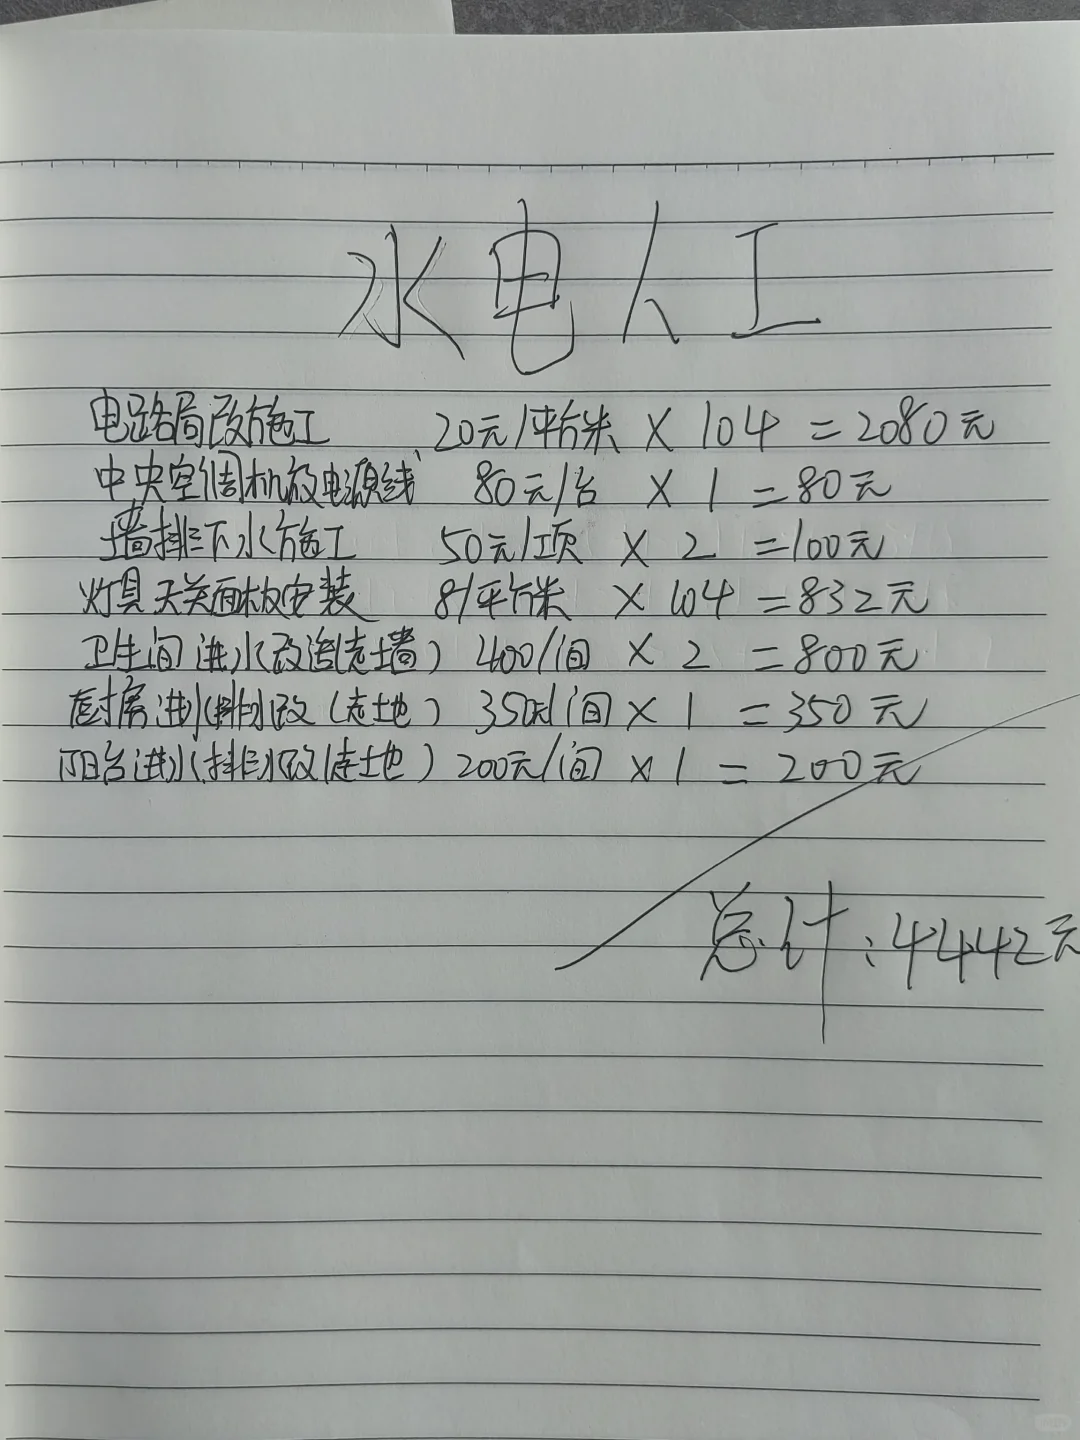 水电人工
电路局改施工 20元/平方米 × 104 = 2080元
中央空调机放电源线 80元/台 × 1 = 80元
墙排下水施工 50元/项 × 2 = 100元
灯具开关面板安装 8/平方米 × 104 = 832元
卫生间进水改造(走墙) 400/间 × 2 = 800元
厨房进水排水改(走地) 350元/间 × 1 = 350元
阳台进水排水改(走地) 200元/间 × 1 = 200元
总计:4442元